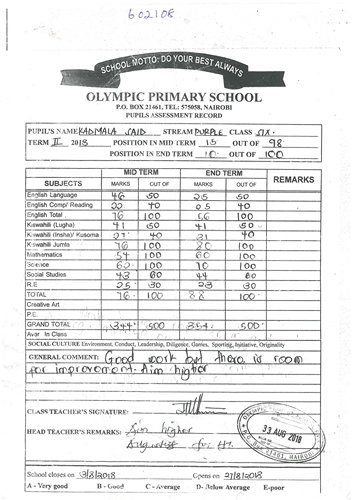 602108
SCHOOL MOTTO: DO YOUR BEST ALWAYS
OLYMPIC PRIMARY SCHOOL
P.O. BOX 21461, TEL: 575058, NAIROBI
PUPILS ASSESSMENT RECORD
PUPIL'S NAME KADMALA SAID STREAM PURPLE CLASS SIX.
TERM II 2018 POSITION IN MID TERM 15 OUT OF 98
POSITION IN END TERM 10 OUT OF 100
MID TERM END TERM REMARKS
SUBJECTS MARKS OUT OF MARKS OUT OF
English Language 46 50 25 50
English Comp/ Reading 40 40
English Total 76 100 66 100
Kiswahili (Lugha) 41 50 41 50
Kiswahili (Insha)/ Kusoma 40 40
Kiswahili Jumla 76 100 80 100
Mathematics 54 100 60 100
Science 62 100 70 100
Social Studies 43 60 60
R.E 25 30 30
TOTAL 76 100 88 100
Creative Art
P.E.
GRAND TOTAL 344 500 500
Aver In Class
SOCIAL CULTURE Environment, Conduct, Leadership, Diligence, Games, Sporting, Initiative, Originality
GENERAL COMMENT: Good work but there is room
for improvement. Aim higher
CLASS TEACHER'S SIGNATURE:
HEAD TEACHER'S REMARKS: Aim higher
for HM.
AUG 2018
School closes on 3/8/2018 Opens on 27/8/2018
A - Very good B - Good C - Average D - Below Average E-poor